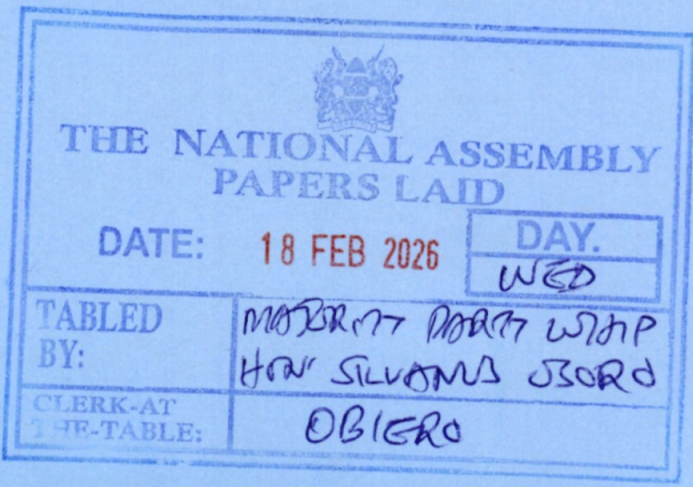 THE NATIONAL ASSEMBLY
PAPERS LAID
DATE: 18 FEB 2026
DAY.
WED
TABLED BY:
MAJORITY PARTY WHIP
HON SILVANUS OSORO
CLERK-AT THE-TABLE:
OBIERO